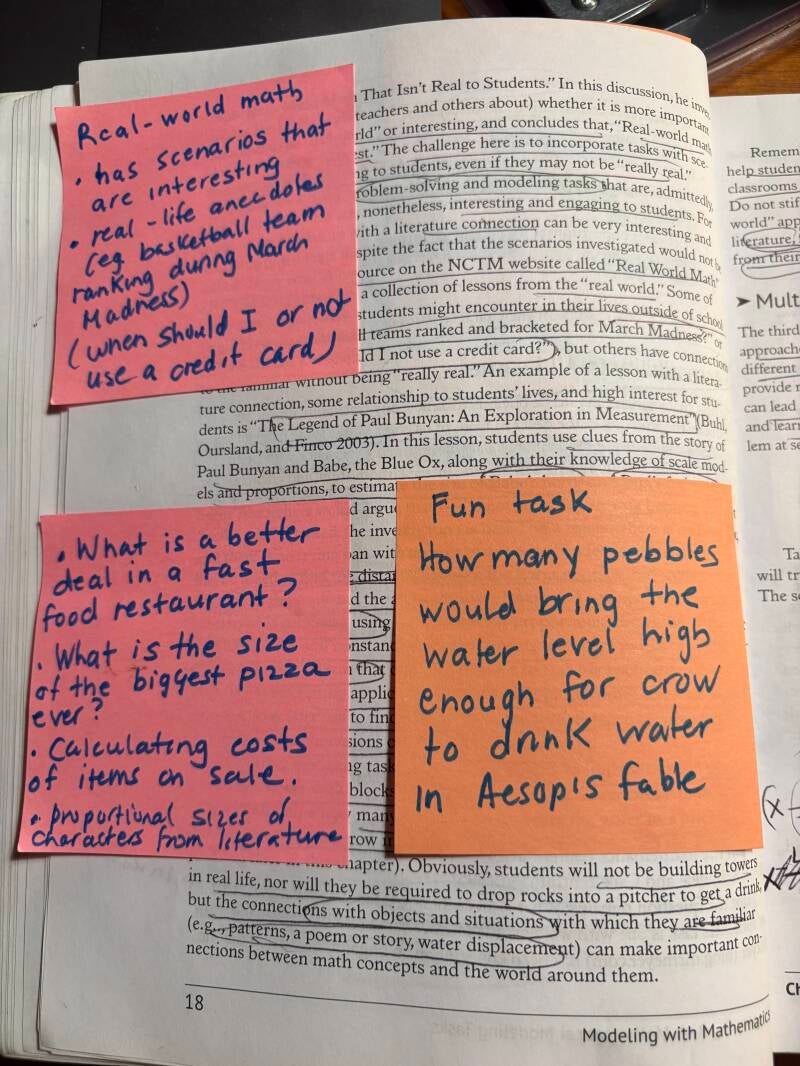 Real-world math
• has scenarios that
are interesting
• real-life anecdotes
(eg basketball team
ranking during March
Madness)
(when should I or not
use a credit card)
That Isn't Real to Students." In this discussion, he inve
teachers and others about) whether it is more important
rld" or interesting, and concludes that, "Real-world math
est." The challenge here is to incorporate tasks with sce-
ng to students, even if they may not be "really real."
roblem-solving and modeling tasks that are, admittedly,
, nonetheless, interesting and engaging to students. For
ith a literature connection can be very interesting and
spite the fact that the scenarios investigated would not be
ource on the NCTM website called "Real World Math"
a collection of lessons from the "real world." Some of
students might encounter in their lives outside of school
ll teams ranked and bracketed for March Madness?" or
ld I not use a credit card?"), but others have connection
to the familiar without being "really real." An example of a lesson with a litera-
ture connection, some relationship to students' lives, and high interest for stu-
dents is "The Legend of Paul Bunyan: An Exploration in Measurement" (Buhl,
Oursland, and Finco 2003). In this lesson, students use clues from the story of
Paul Bunyan and Babe, the Blue Ox, along with their knowledge of scale mod-
els and proportions, to estimat
• What is a better
deal in a fast
food restaurant?
• What is the size
of the biggest pizza
ever?
• Calculating costs
of items on sale.
• Proportional sizes of
characters from literature
argu
he inve
an wit
e distan
d the a
using
onstan
that
applic
to fin
sions
ng task
block
many
row i
Fun task
How many pebbles
would bring the
water level high
enough for crow
to drink water
in Aesop's fable
chapter). Obviously, students will not be building towers
in real life, nor will they be required to drop rocks into a pitcher to get a drink,
but the connections with objects and situations with which they are familiar
(e.g., patterns, a poem or story, water displacement) can make important con-
nections between math concepts and the world around them.
18
Modeling with Mathematics
Remem
help studen
classrooms
Do not stif
world" app
literature,
from their
➤ Mult
The third
approache
different
provide r
can lead
and learn
lem at se
Ta
will tr
The s
(x
x
Ch